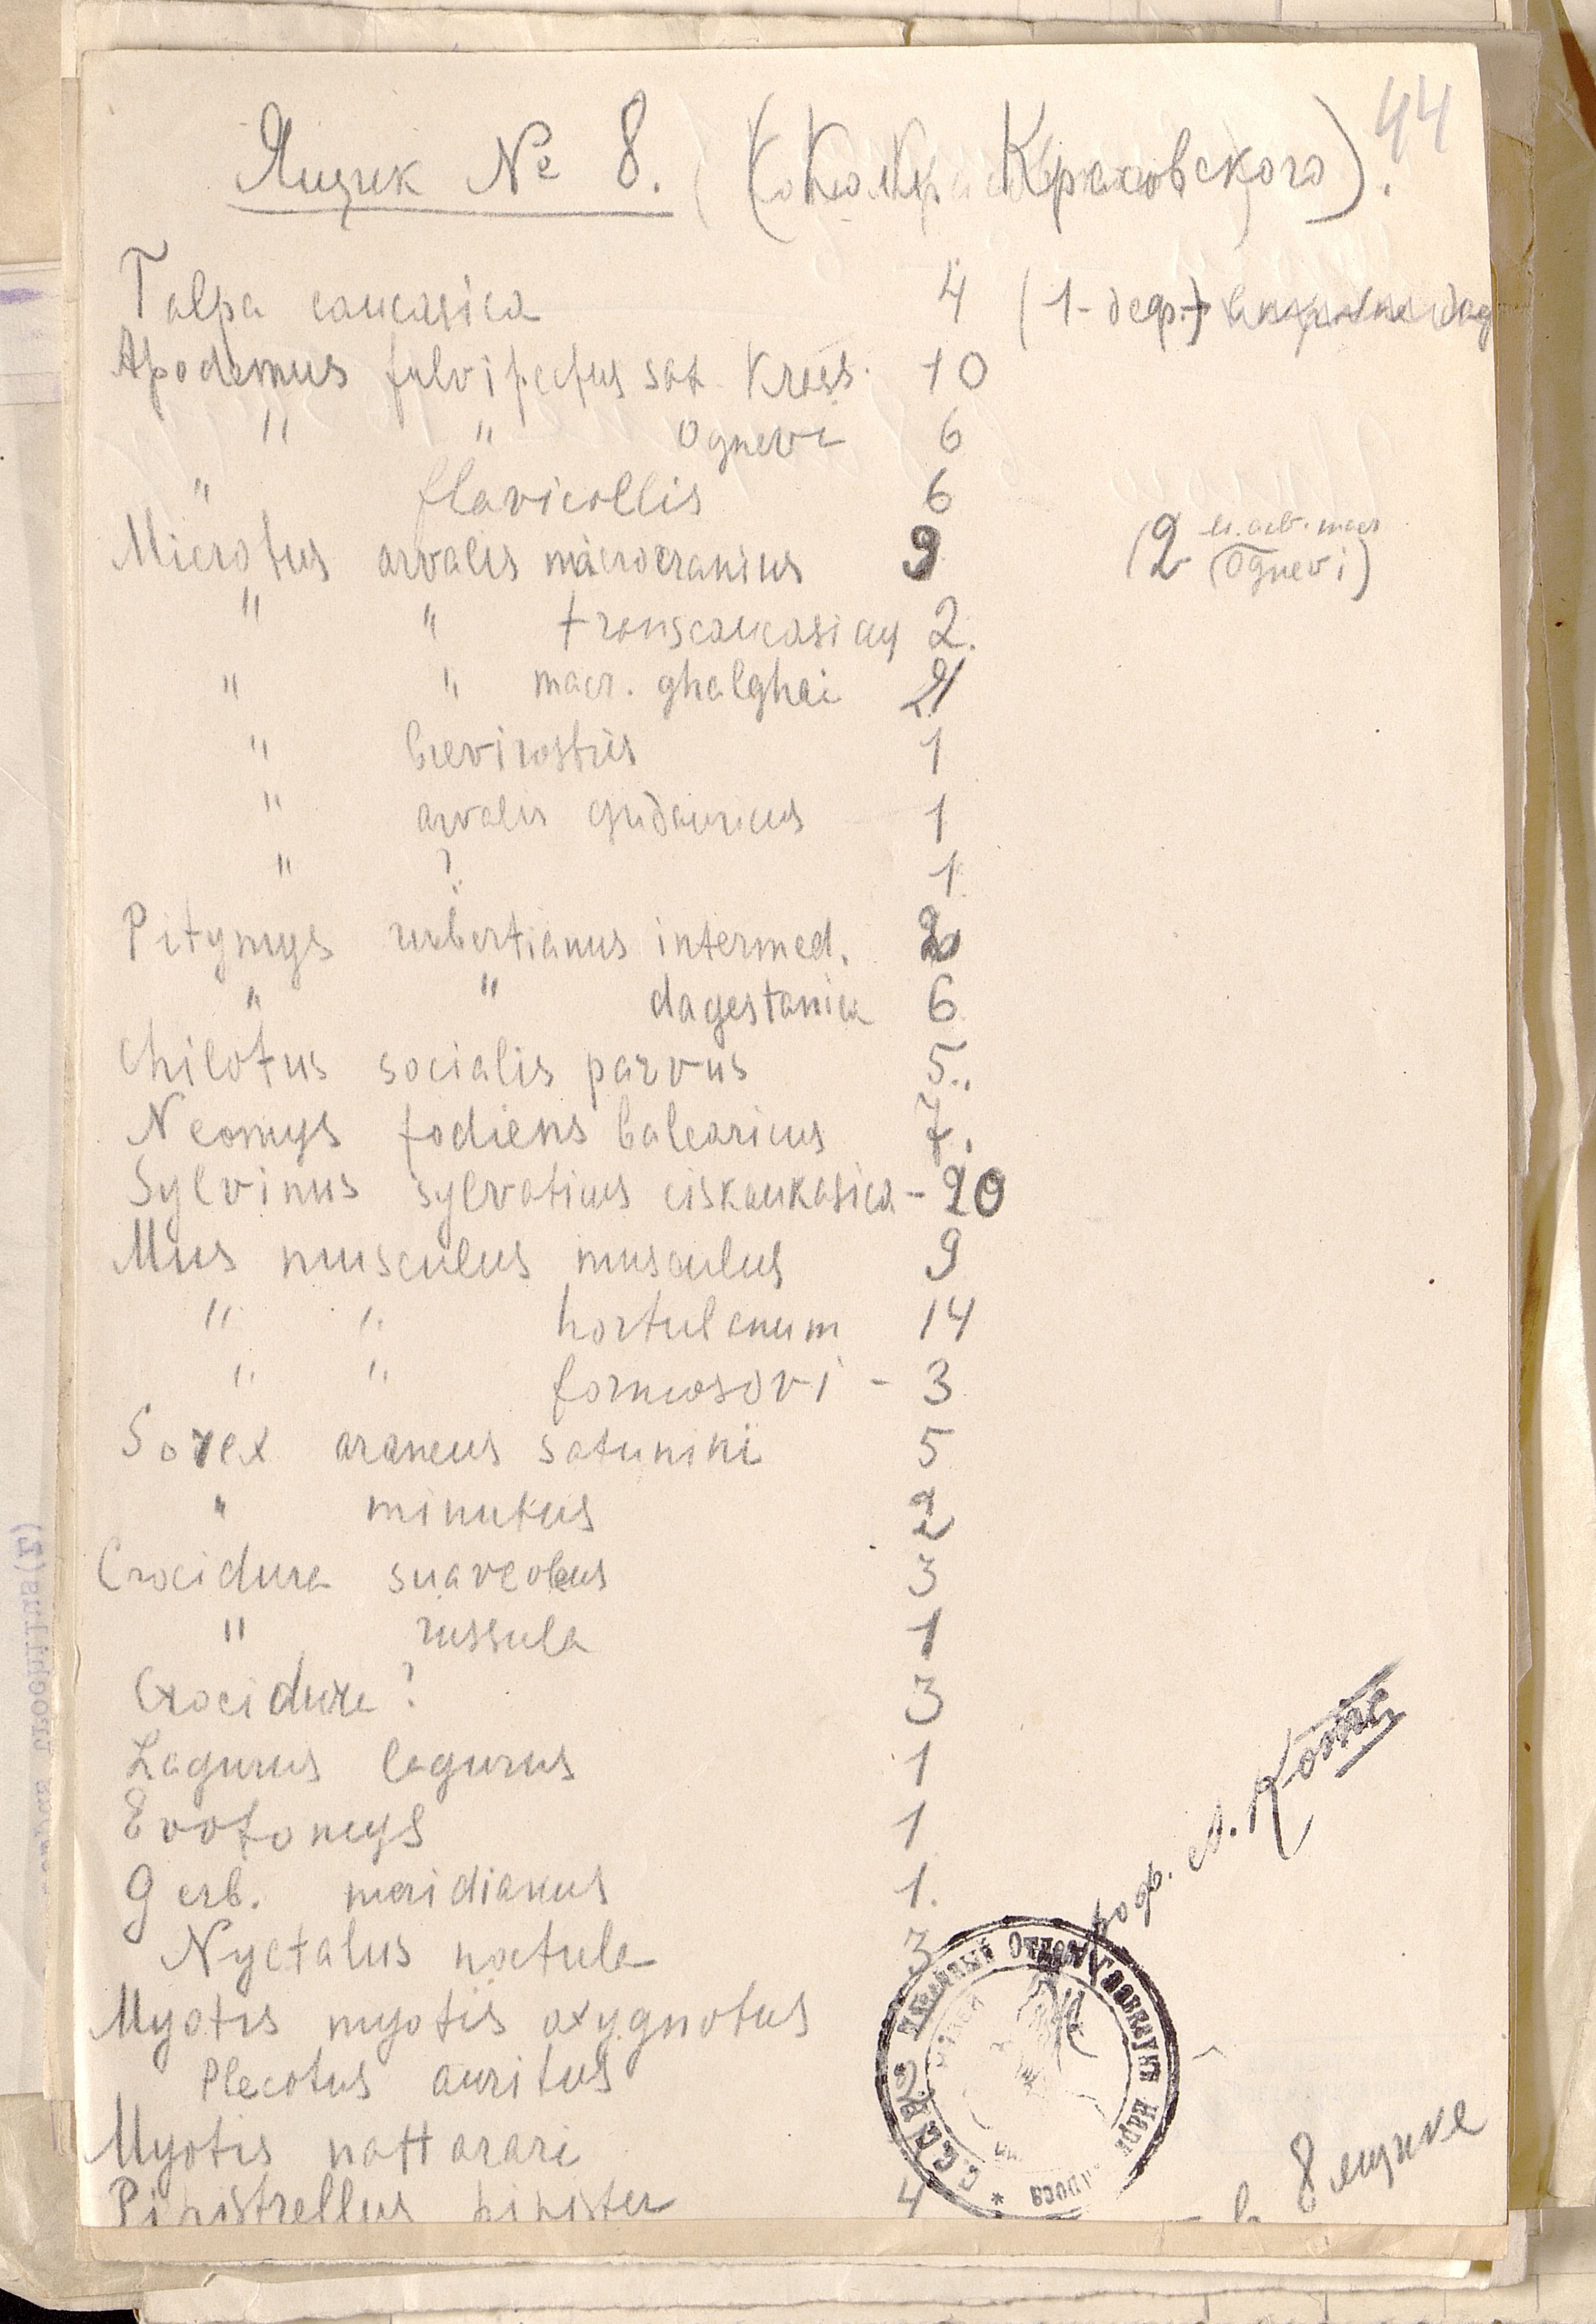 44
Ящик № 8. (Краховского).
Talpa caucasica 4 (1- деф.)
Apodemus fulvipectus sat. Krass. 10
" " Ognevi 6
" flavicollis 6
Microtus arvalis macrocranius 9 (2 Ognevi)
" " transcaucasicus 2.
" " macr. ghalghai
" brevirostris 1
" arvalis gudauricus 1
" ? 1
Pitymys intermed.
" " dagestanica 6
Chilotus socialis parvus 5.
Neomys fodiens balcaricus 7.
Sylvimus sylvaticus ciskaukasica - 20
Mus musculus musculus 9
" " hortulanum 14
" " formosovi - 3
Sorex araneus satunini 5
" minutus 2
Crocidura suaveolens 3
" russula 1
Crocidura ? 3
Lagurus lagurus 1
Evotomys 1
Gerb. meridianus 1.
Nyctalus noctula 3
Myotis myotis oxygnotus
Plecotus auritus 2
Myotis nattarari
Pipistrellus pipister 4
в 8 ящике